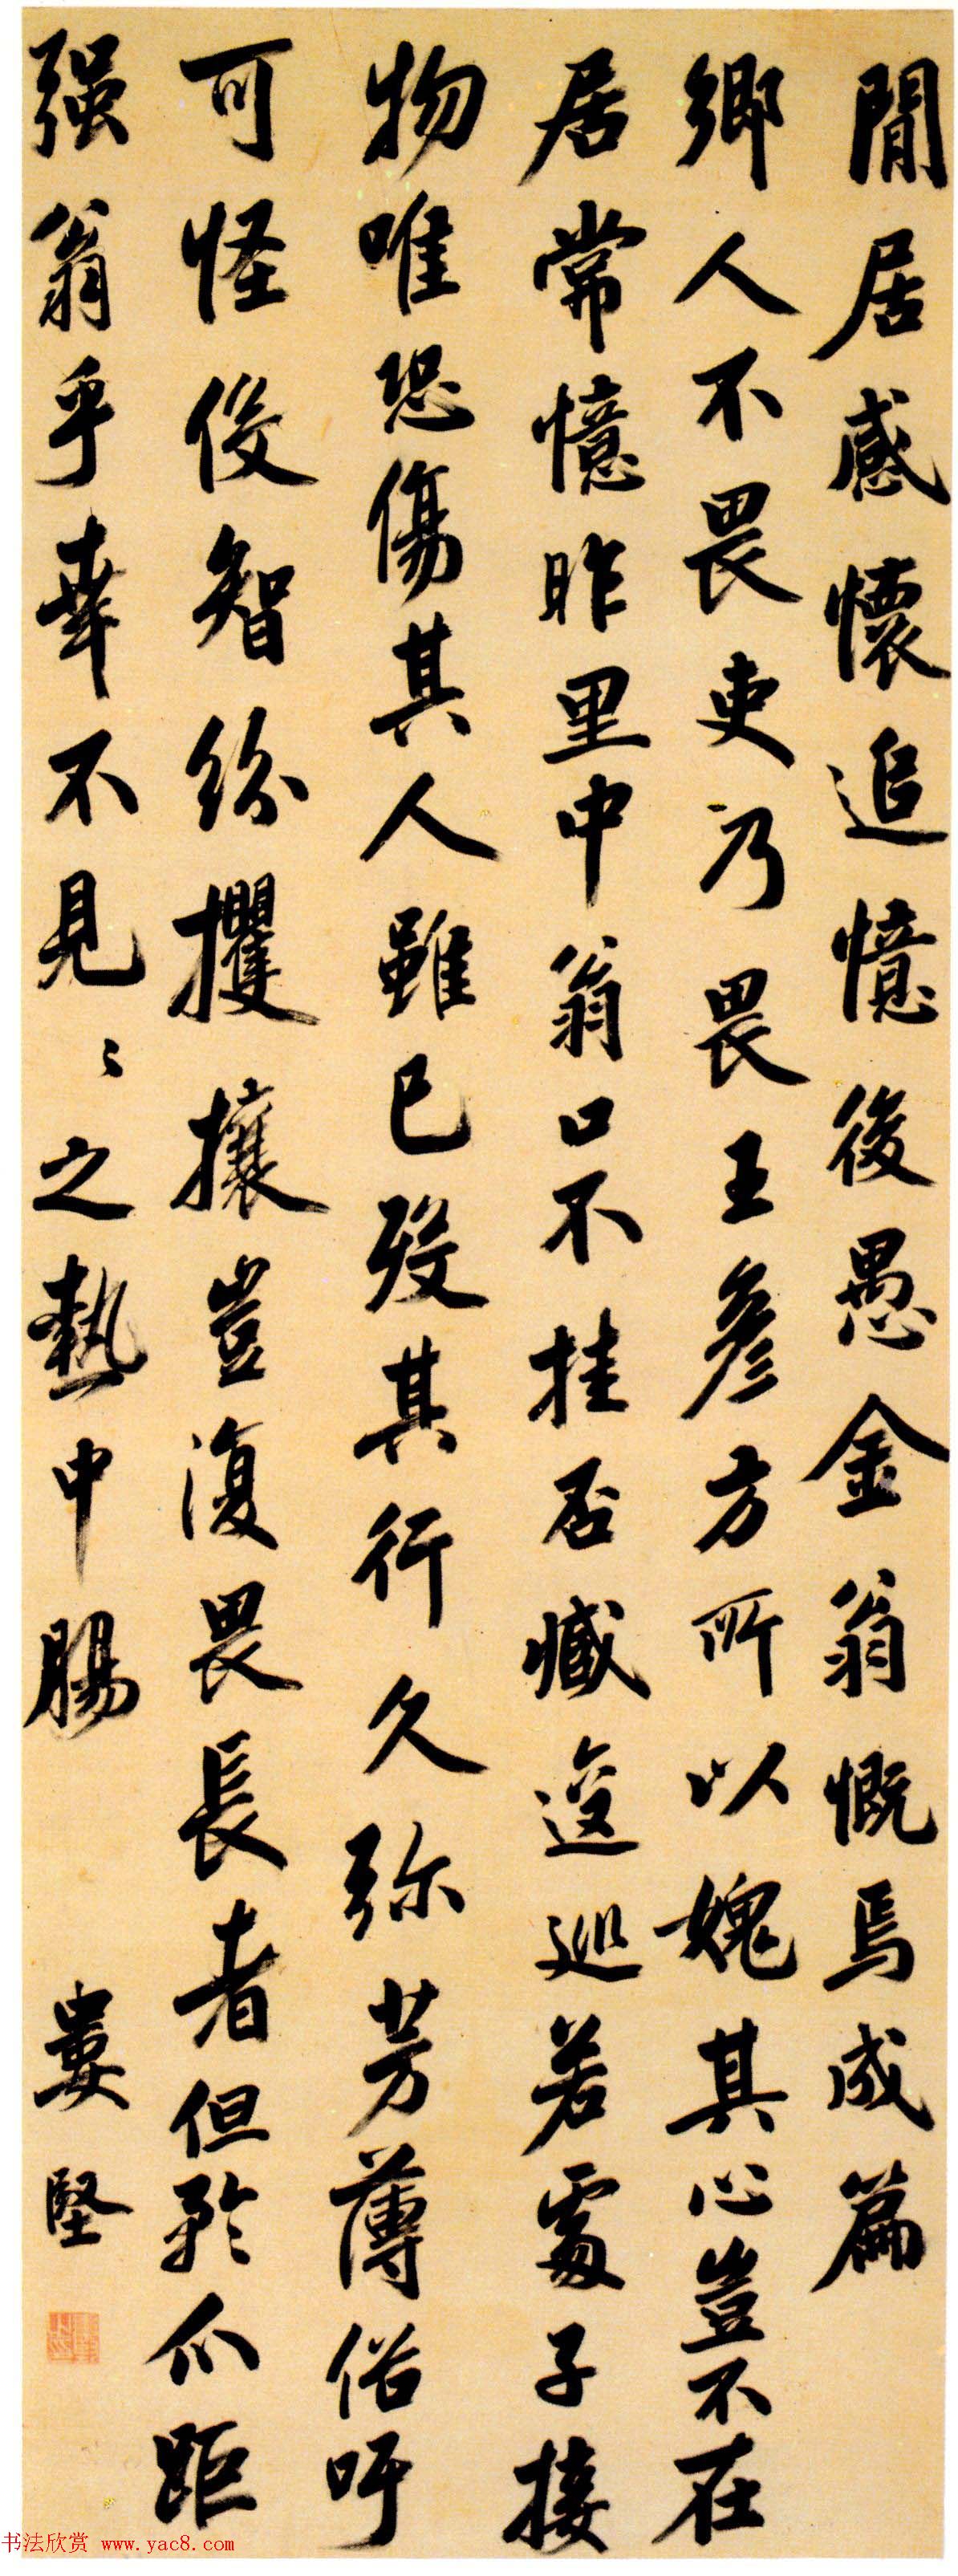 閒居感懷追憶後愚金翁慨焉成篇
鄉人不畏吏乃畏王彥方所以媿其心豈不在
居常憶昨里中翁口不挂否臧逡巡若處子接
物唯恐傷其人雖已歿其行久弥芳薄俗吁
可怪俊智紛攫攘豈復畏長者但矜爪距
强翁乎幸不見〻之熱中腸
婁堅
书法欣赏 www.yac8.com